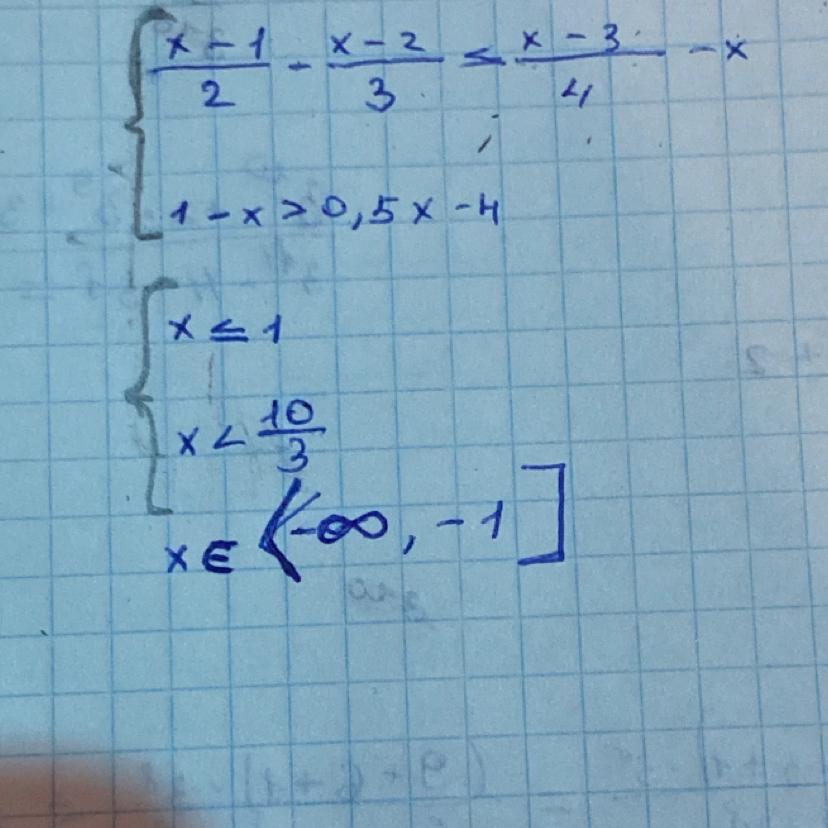 { x-1/2 - x-2/3 ≤ x-3/4 -x
1-x>0,5x-4
{ x≤1
x<10/3
x∈(-∞,-1]